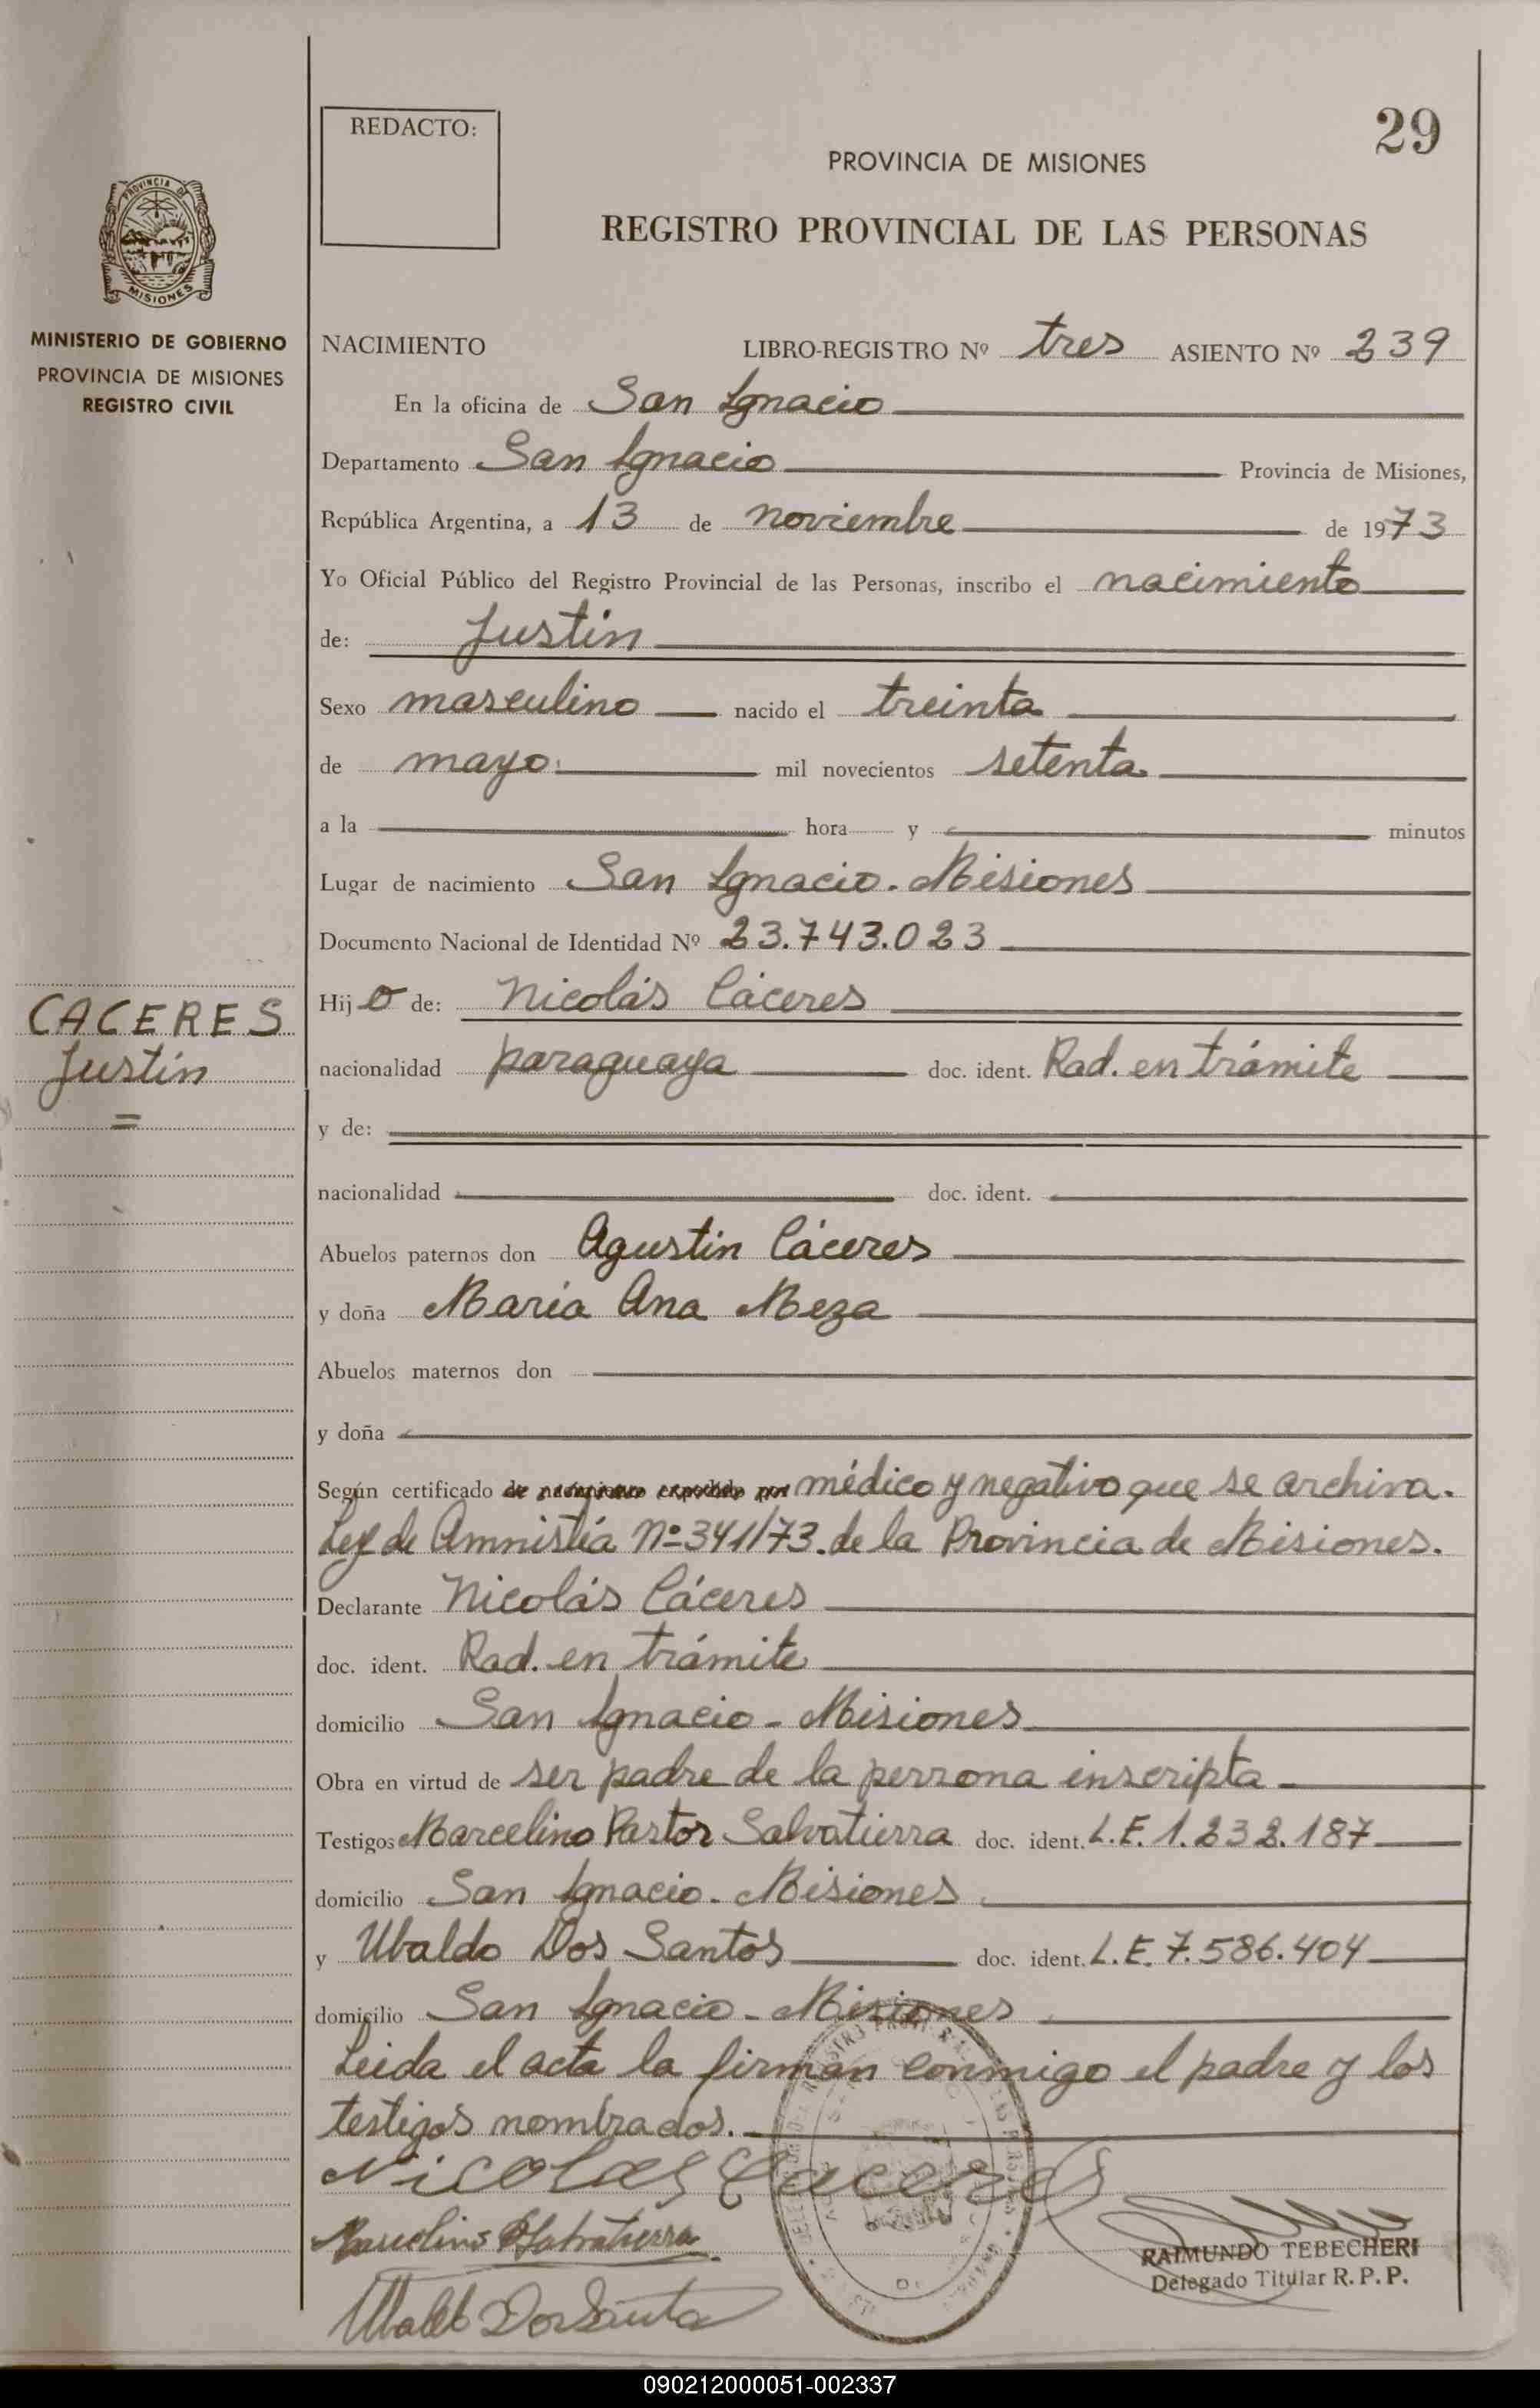 REDACTO:
29
PROVINCIA DE MISIONES
REGISTRO PROVINCIAL DE LAS PERSONAS
PROVINCIA DE
MISIONES
MINISTERIO DE GOBIERNO
PROVINCIA DE MISIONES
REGISTRO CIVIL
NACIMIENTO LIBRO-REGISTRO Nº tres ASIENTO Nº 239
En la oficina de San Ignacio
Departamento San Ignacio Provincia de Misiones,
República Argentina, a 13 de noviembre de 1973
Yo Oficial Público del Registro Provincial de las Personas, inscribo el nacimiento
de: Justin
Sexo masculino nacido el treinta
de mayo mil novecientos setenta
a la hora y minutos
Lugar de nacimiento San Ignacio. Misiones
Documento Nacional de Identidad Nº 23.743.023
CACERES
Justín
=
Hijo de: Nicolás Cáceres
nacionalidad paraguaya doc. ident. Rad. en trámite
y de:
nacionalidad doc. ident.
Abuelos paternos don Agustin Cáceres
y doña María Ana Meza
Abuelos maternos don
y doña
Según certificado de nacimiento expedido por médico y negativo que se archiva.
Ley de Amnistía Nº 341/73. de la Provincia de Misiones.
Declarante Nicolás Cáceres
doc. ident. Rad. en trámite
domicilio San Ignacio - Misiones
Obra en virtud de ser padre de la persona inscripta
Testigos Marcelino Pastor Salvatierra doc. ident. L.E. 1.232.187
domicilio San Ignacio. Misiones
y Ubaldo Dos Santos doc. ident. L.E. 7.586.404
domicilio San Ignacio - Misiones
Leida el acta la firman conmigo el padre y los
testigos nombrados.
Nicolas Caceres
Marcelino P Salvatierra
Ubaldo Dos Santos
RAIMUNDO TEBECHERI
Delegado Titular R. P. P.
090212000051-002337